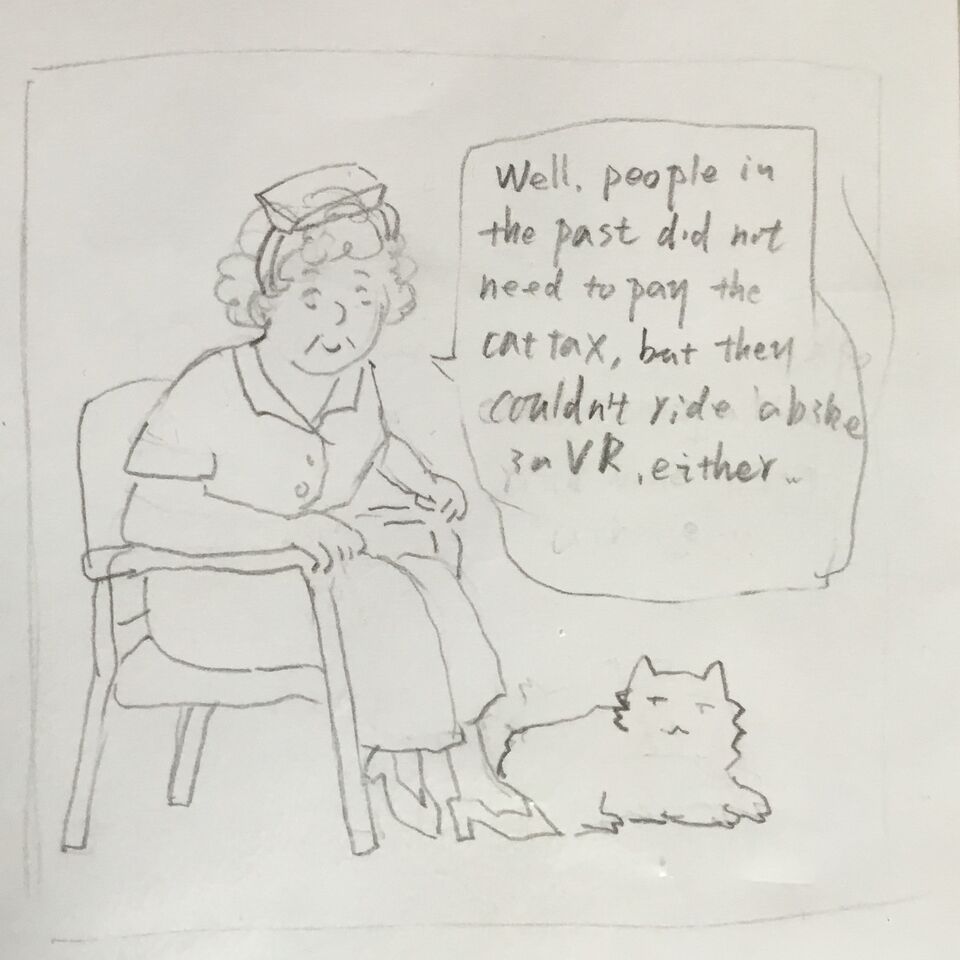 Well, people in
the past did not
need to pay the
cat tax, but they
couldn't ride a bike
in VR, either..